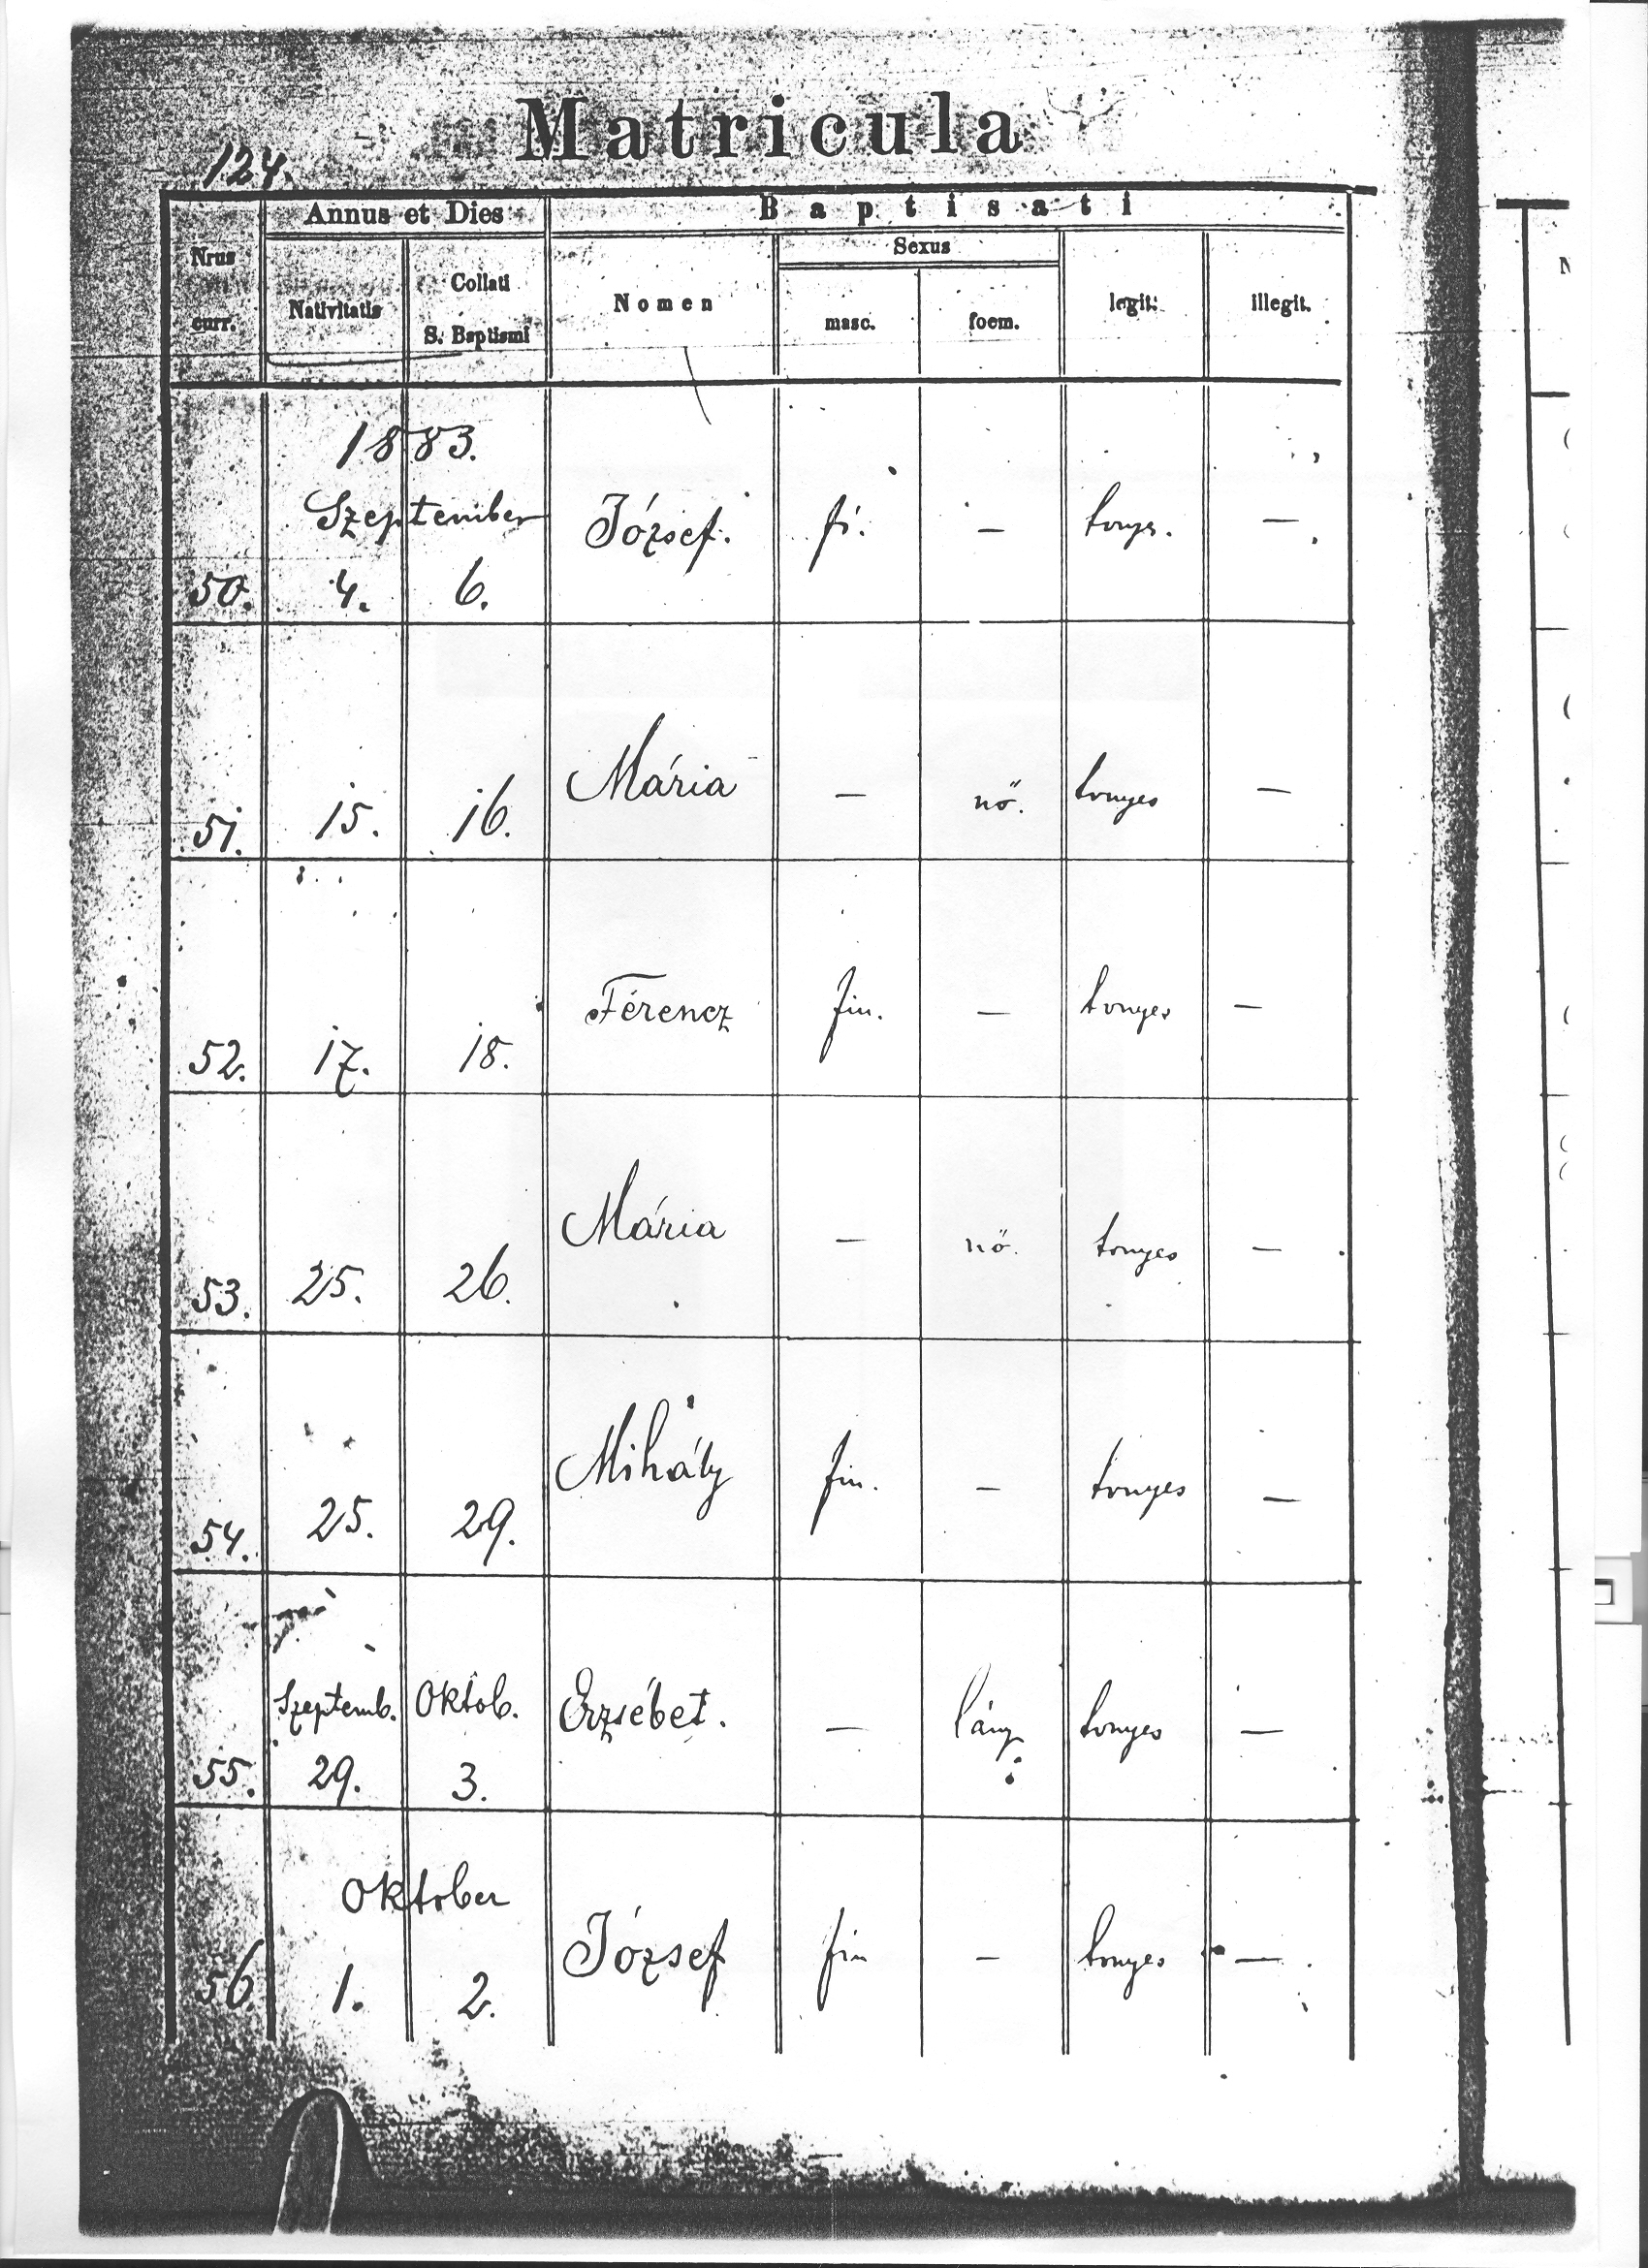 Matricula
124.
Annus et Dies
Baptisati
Nrus
curr.
Nativitatis
Collati
S. Baptismi
Nomen
Sexus
masc.
foem.
legit.
illegit.
1883.
Szeptember
50. 4. 6. József. fi. — tvnys. —
51. 15. 16. Mária — nő. tvnyes —
52. 17. 18. Férencz fiu. — tvnyes —
53. 25. 26. Mária — nő. tvnyes —
54. 25. 29. Mihály fiu. — tvnyes —
Szeptemb. Oktob.
55. 29. 3. Erzsébet. — lány tvnyes —
Oktober
56. 1. 2. József fiu — tvnyes —